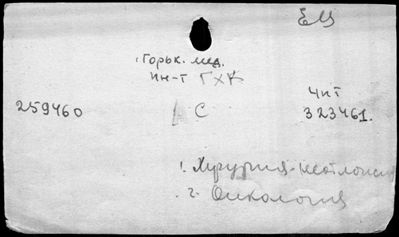 ЕМ
Горьк. мед.
ин-т ГХК
Чит
259460 С 323461.
1. Хирургия-неотложн
2. Онкология